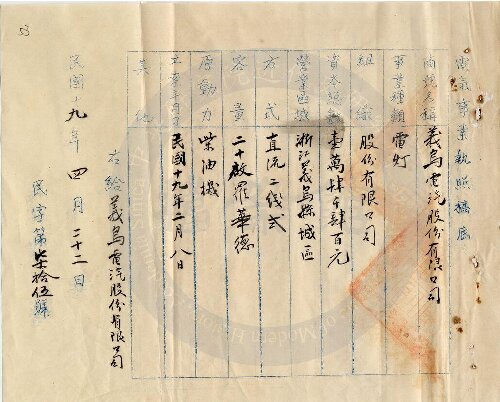 電氣事業執照稿底
商號名稱 義烏電汽股份有限公司
事業種類 電灯
組織 股份有限公司
資本總額 壹萬肆千肆百元
營業區域 浙江義烏縣城區
方式 直流二线式
容量 二十啟羅華德
原動力 柴油機
立案年月日 民國十九年二月八日
其他
右給義烏電汽股份有限公司
民國十九年四月二十二日
民字第柒拾伍號
53
of Modern History